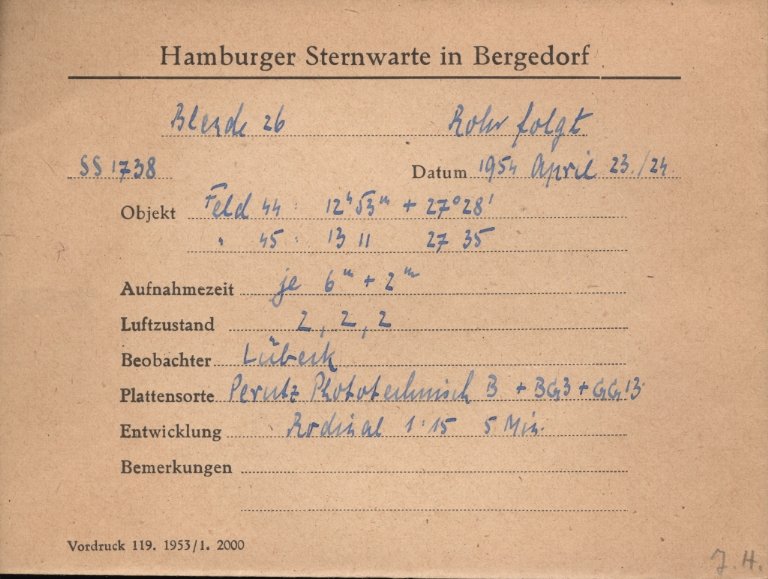 Hamburger Sternwarte in Bergedorf
Blende 26 Rohr folgt
SS 1738 Datum 1954 April 23./24.
Objekt Feld 44: 12ʰ 53ᵐ + 27° 28'
" 45: 13 11 27 35
Aufnahmezeit je 6ᵐ + 2ᵐ
Luftzustand 2, 2, 2
Beobachter Lübeck
Plattensorte Perutz Phototechnisch B + BG3 + GG13
Entwicklung Rodinal 1:15 5 Min.
Bemerkungen
Vordruck 119. 1953/1. 2000
J. H.